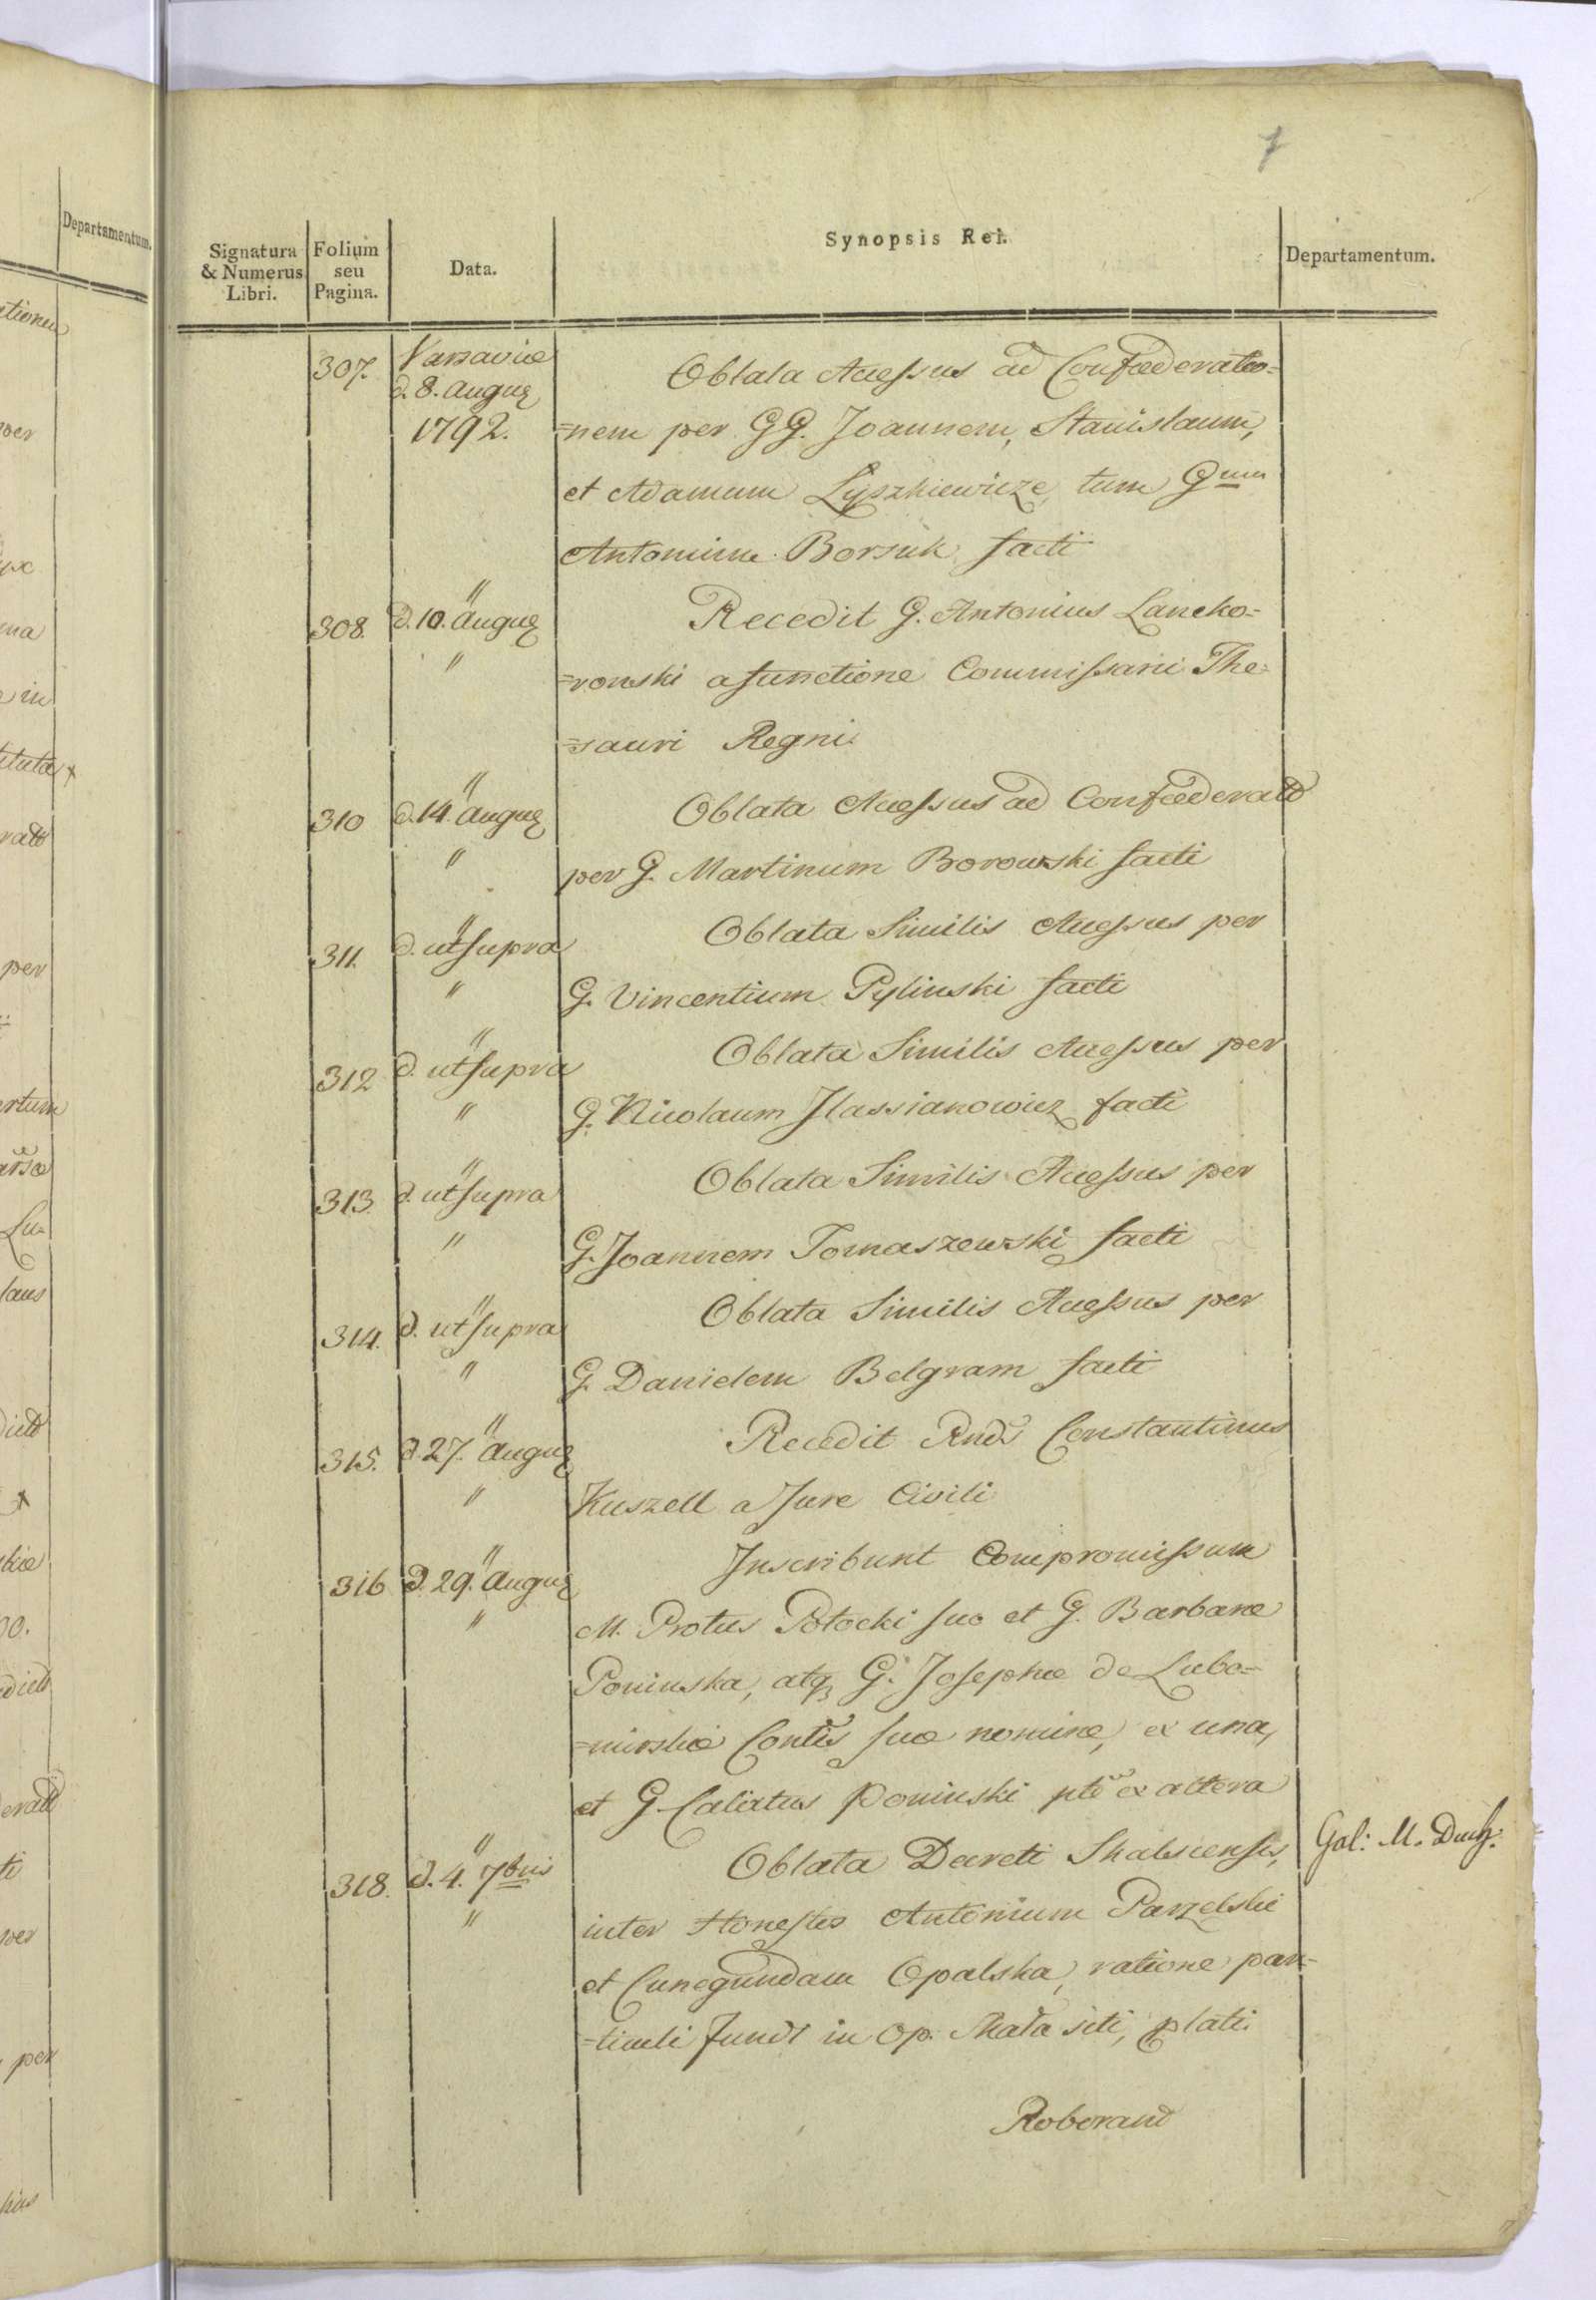 7
Departamentum.
Signatura & Numerus Libri.
Folium seu Pagina.
Data.
Synopsis Rei.
Departamentum.
307. Varsaviæ
d. 8. Augus
1792.
Oblata Accessus ad Confæderatio=
=nem per GG. Joannem, Stanislaum,
et Adamum Lyszkiewicze, tum Gnum
Antonium Borsuk facti
308. d. 10. " Augus "
Recedit G. Antonius Lancko=
=ronski a functione Commissarii The=
=sauri Regni
310 d. 14. " Augus "
Oblata Accessus ad Confæderatt
per G. Martinum Borowski facti
311. d. ut supra "
Oblata Similis Accessus per
G. Vincentium Pylinski facti
312 d. ut supra "
Oblata Similis Accessus per
G. Nicolaum Hassianowicz facti
313. d. ut supra "
Oblata Similis Accessus per
G. Joannem Tomaszewski facti
314. d. ut supra "
Oblata Similis Accessus per
G. Danielem Belgram facti
315. d. 27. " Augus "
Recedit Rnds Constantinus
Kuszell a Jure Civili
316 d. 29. " Augus "
Inscribunt Compromissum
M. Protus Potocki suo et G. Barbaræ
Poninska, atq G. Josephæ de Lubo=
=mirskie Contis suæ nomine, ex una,
et G. Calixtus Poninski pte ex altera
318. d. 4. 7bris "
Oblata Decreti Skalsiensis,
inter Honestos Antonium Parzelski
et Cunegundam Opalska, ratione par=
=ticuli Fundi in Op. siti, plati
Roborand
Gal: M. Duch.